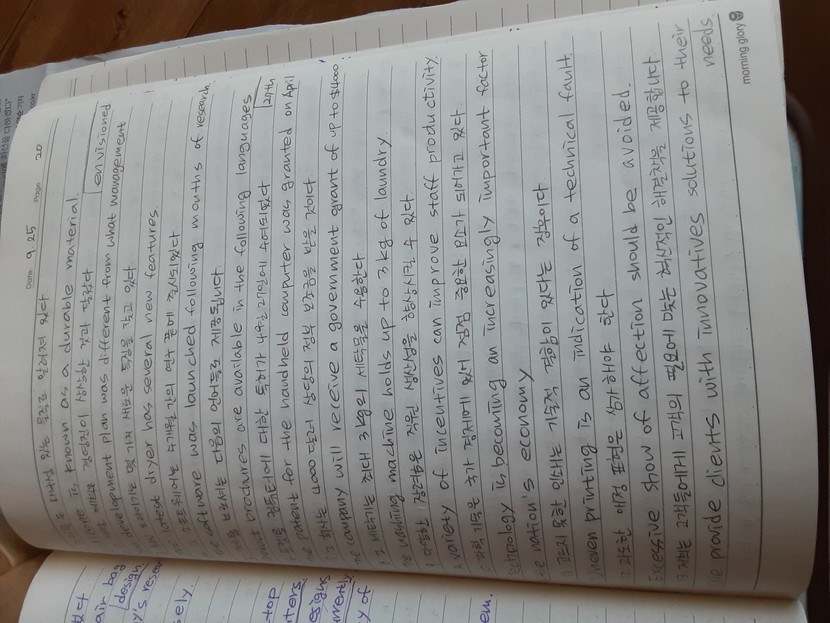 Date 9. 25 Page 20
내구성 있는 물질로 알려져 있다
is known as a durable material.
경영진이 생각한 것과 달랐다
envisioned
development plan was different from what management
드라이기는 몇 가지 새로운 특징을 갖고 있다
latest dryer has several new features
소프트웨어는 수개월간의 연구 끝에 출시되었다
software was launched following months of research
브로셔는 다음의 언어들로 제공됩니다
brochures are available in the following languages
컴퓨터에 대한 특허가 4월 27일에 수여되었다
27th
patent for the handheld computer was granted on April
회사는 4000달러 상당의 정부 보조금을 받을 것이다
company will receive a government grant of up to $4000
세탁기는 최대 3kg의 세탁물을 수용한다
washing machine holds up to 3kg of laundry
다양한 장려책은 직원 생산성을 향상시킬 수 있다
variety of incentives can improve staff productivity
과학 기술은 국가 경제에 있어 점점 중요한 요소가 되어가고 있다
technology is becoming an increasingly important factor
the nation's economy
고르지 못한 인쇄는 기술적 결함이 있다는 징후이다
uneven printing is an indication of a technical fault
과도한 애정 표현은 삼가해야 한다
Excessive show of affection should be avoided.
우리는 고객들에게 고객의 필요에 맞는 혁신적인 해결책을 제공합니다
we provide clients with innovatives solutions to their
needs
morning glory
air bag
design
y's resear
sely.
top
ters
esigns
urrently
y of
em.